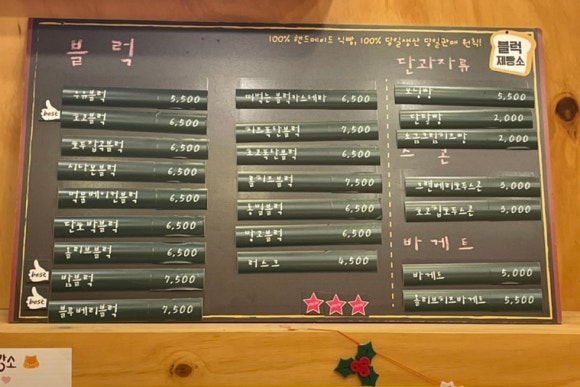 100% 핸드메이드 식빵, 100% 당일생산 당일판매 원칙!
블럭
제빵소
블럭
우유블럭 5,500
best
초코블럭 6,500
호두밤콩블럭 6,500
시나몬블럭 6,500
먹물베이컨블럭 6,500
단호박블럭 6,500
올리브블럭 6,500
best
밤블럭 7,500
best
블루베리블럭 7,500
떠먹는 블럭카스테라 6,500
치즈톡핀블럭 7,500
6,500
롤치즈블럭 7,500
통밀블럭 6,500
앙고블럭 6,500
러스크 4,500
단과자류
5,500
단팥빵 2,000
소금크림치즈빵 2,000
스콘
크랜베리호두스콘 3,000
초코칩호두스콘 3,000
바게트
바게트 5,000
올리브치즈바게트 5,500